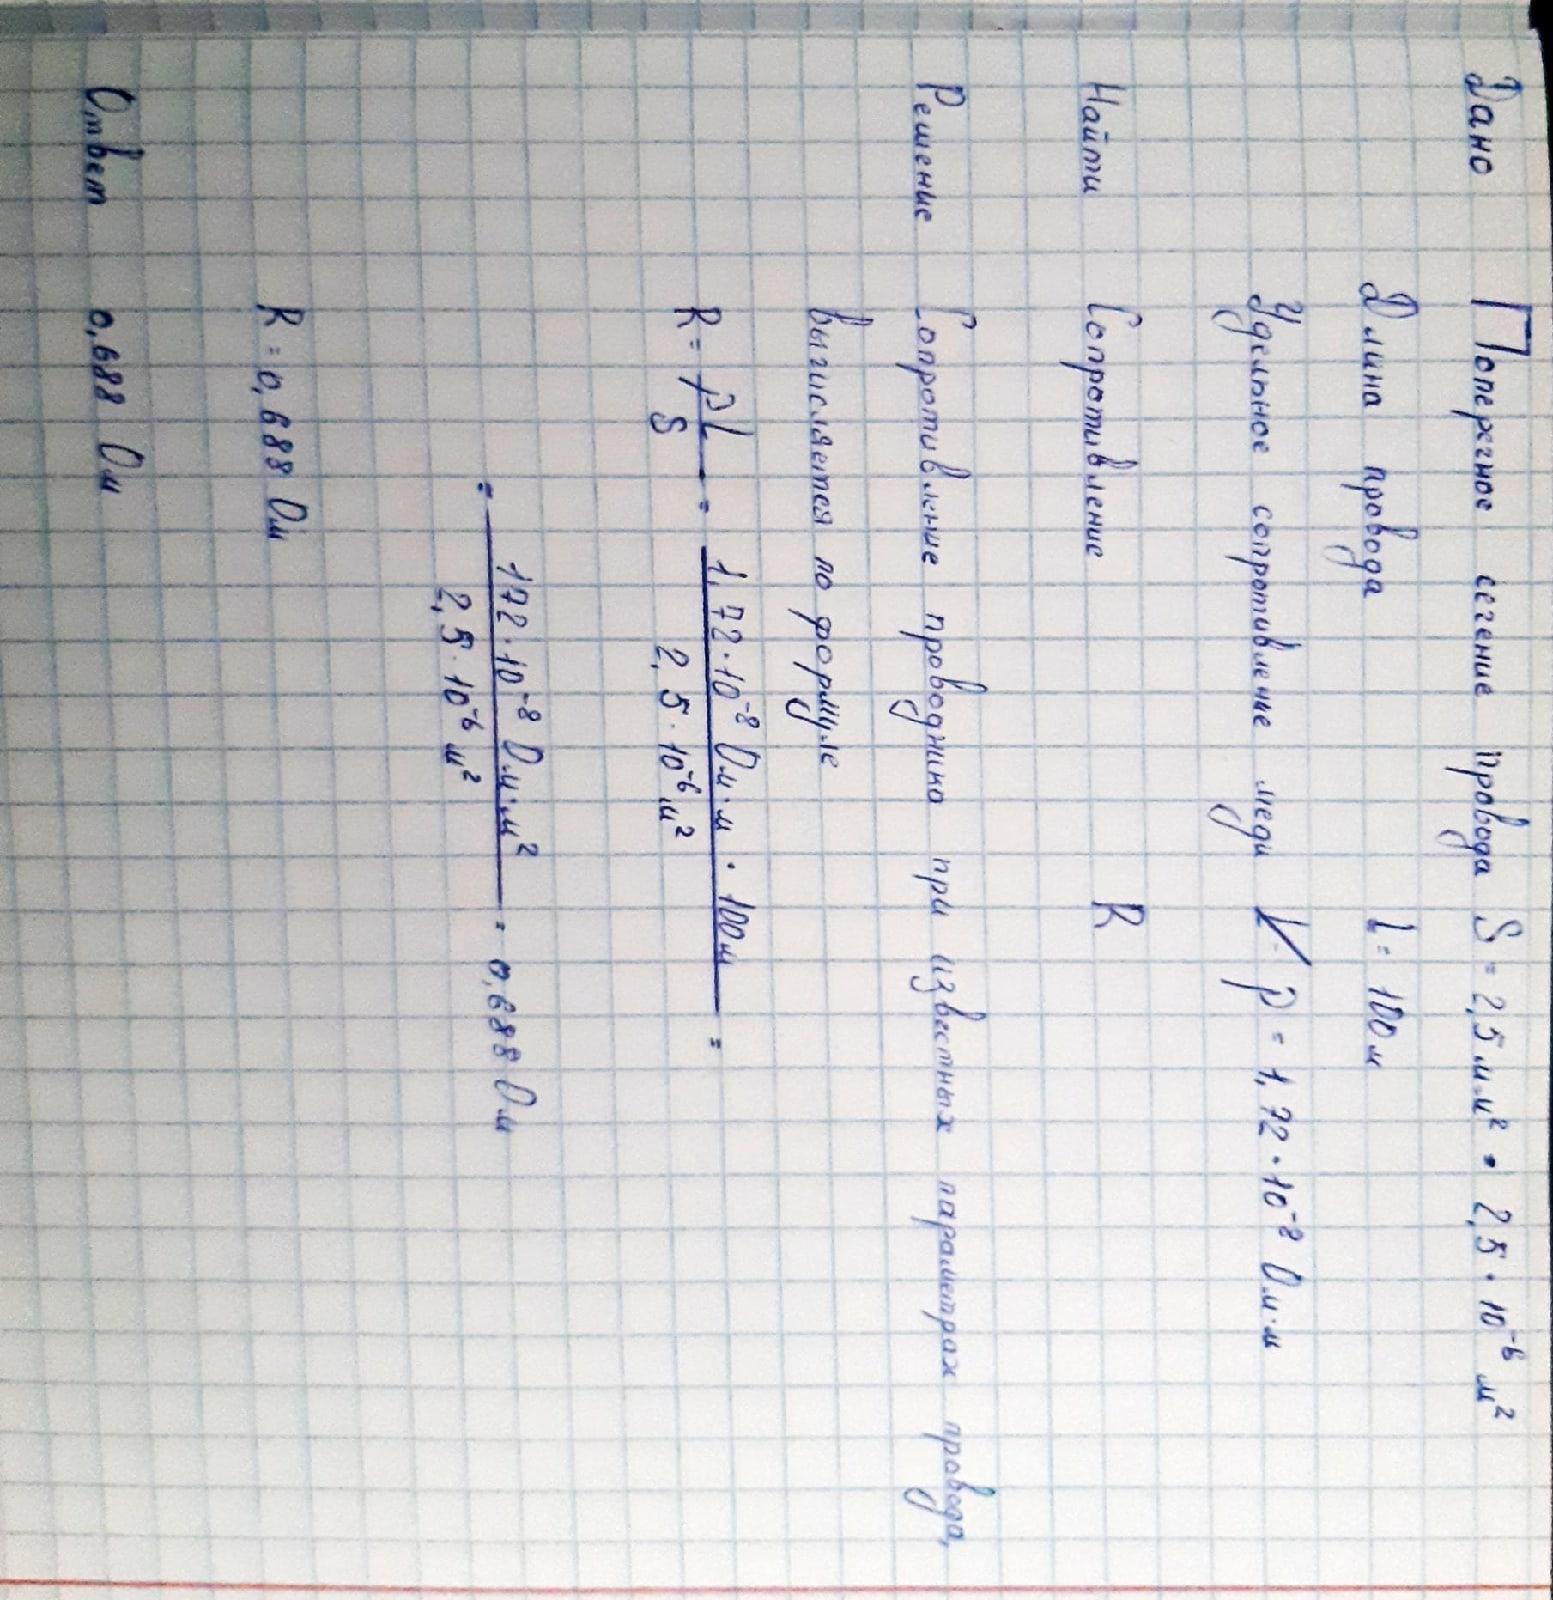 Дано Поперечное сечение провода S = 2,5 мм² = 2,5 · 10⁻⁶ м²
Длина провода l = 100 м
Удельное сопротивление меди ρ = 1,72 · 10⁻⁸ Ом·м
Найти Сопротивление R
Решение Сопротивление проводника при известных параметрах провода,
вычисляется по формуле
R = ρl / S = 1,72 · 10⁻⁸ Ом·м · 100м / 2,5 · 10⁻⁶ м² =
= 172 · 10⁻⁸ Ом·м² / 2,5 · 10⁻⁶ м² = 0,688 Ом
R = 0,688 Ом
Ответ 0,688 Ом